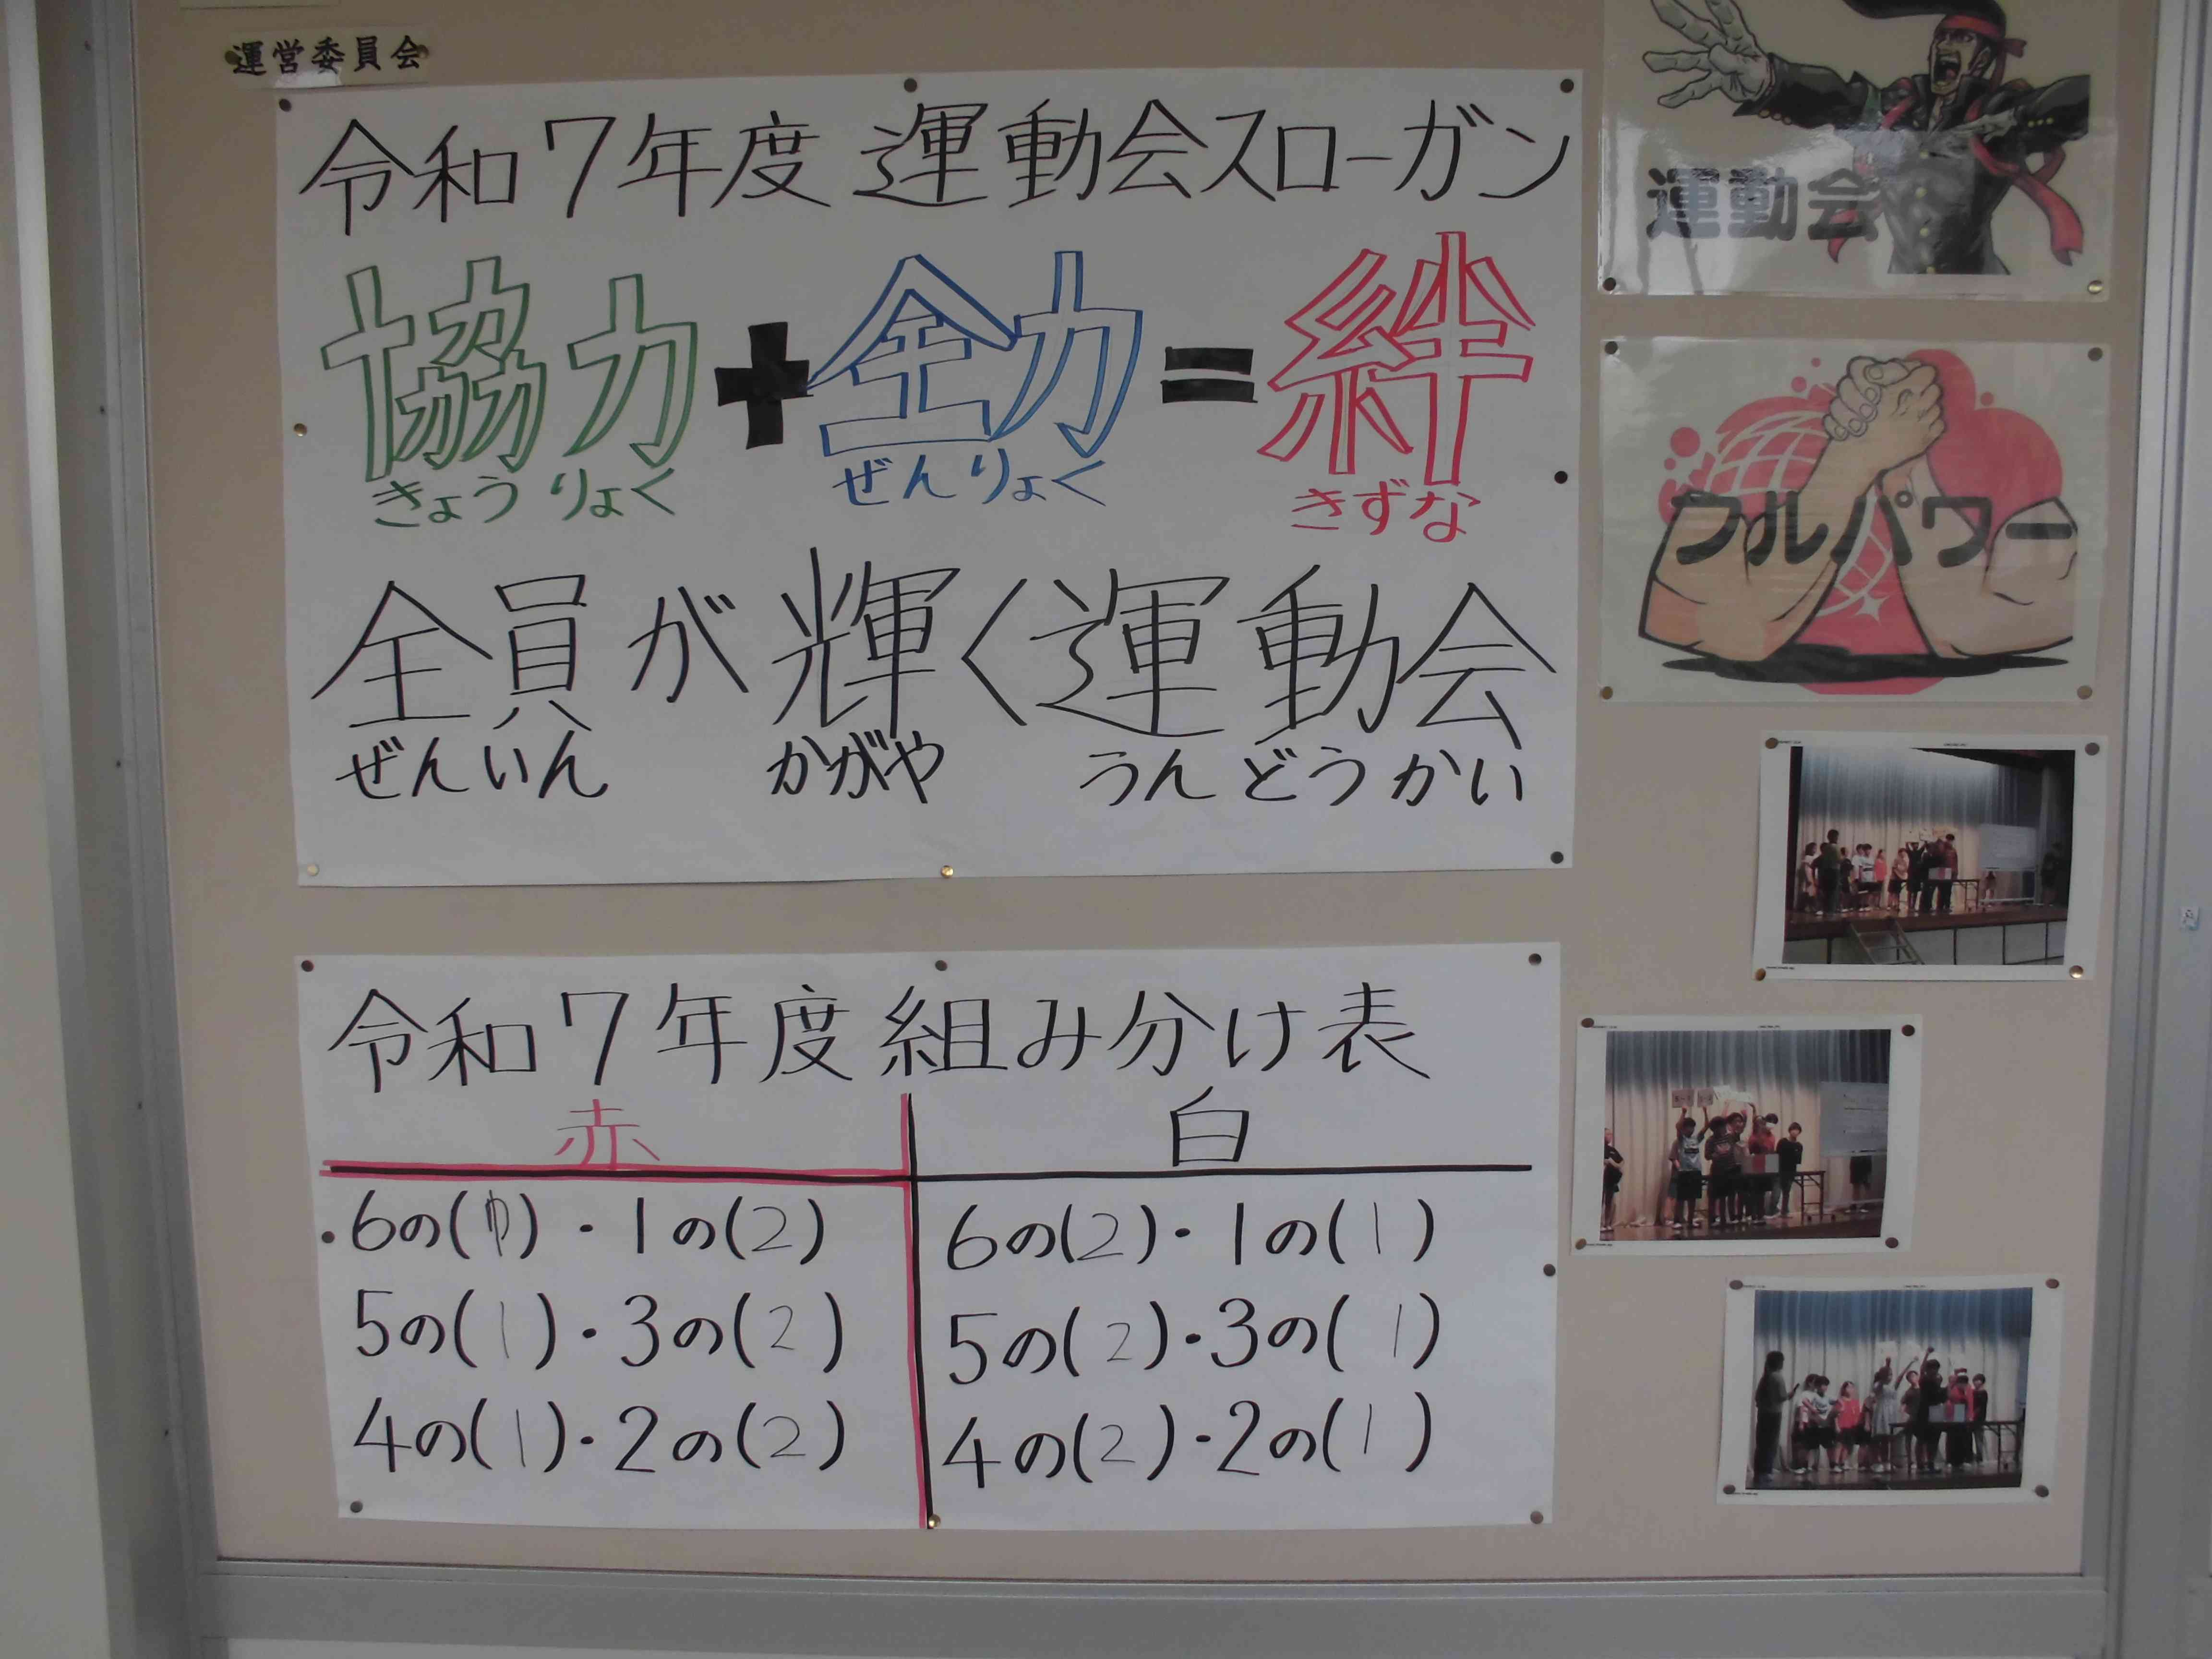 運営委員会
令和7年度 運動会スローガン
協力+全力=絆
きょうりょく ぜんりょく きずな
全員が輝く運動会
ぜんいん かがや うんどうかい
令和7年度組み分け表
赤 白
6の(1)・1の(2) 6の(2)・1の(1)
5の(1)・3の(2) 5の(2)・3の(1)
4の(1)・2の(2) 4の(2)・2の(1)
運動会
フルパワー